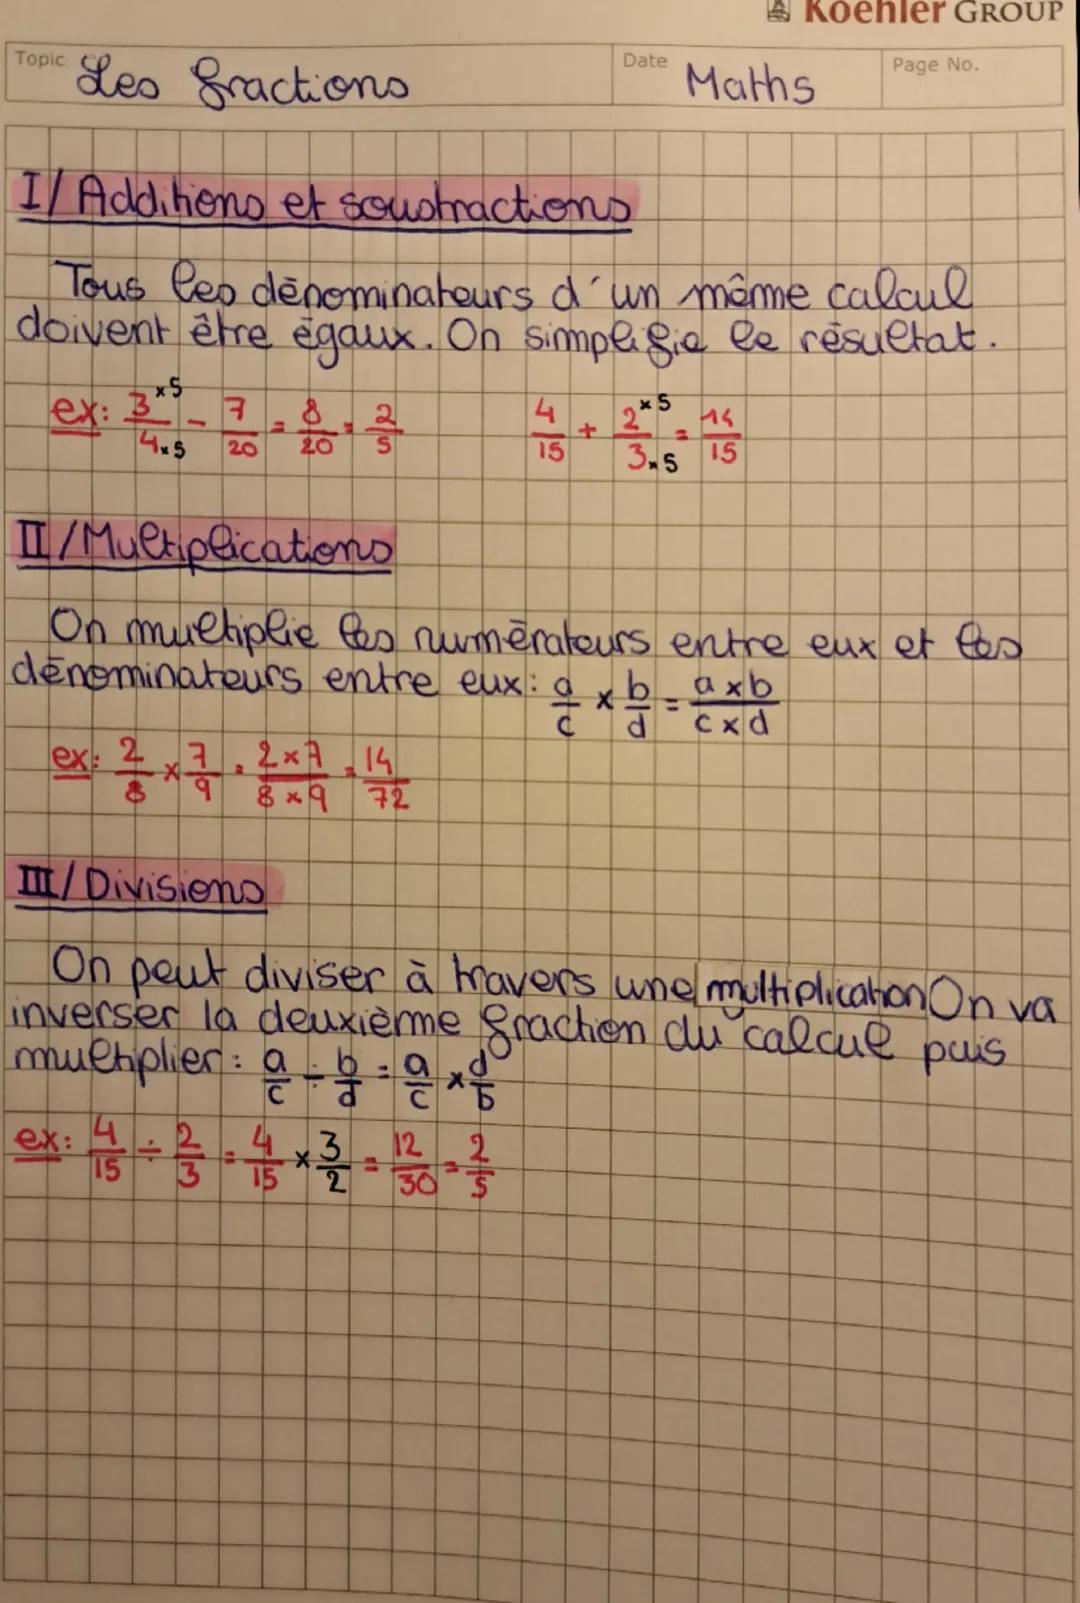 Koehler GROUP
Topic Les fractions Date Maths Page No.
I/ Additions et soustractions
Tous les dénominateurs d'un même calcul
doivent être égaux. On simplifie le résultat.
ex: 3×5/4×5 - 7/20 = 8/20 = 2/5 4/15 + 2×5/3×5 = 14/15
II/Multiplications
On multiplie les numérateurs entre eux et les
dénominateurs entre eux: a/c × b/d = a×b/c×d
ex: 2/8 × 7/9 = 2×7/8×9 = 14/72
III/ Divisions
On peut diviser à travers une multiplication On va
inverser la deuxième fraction du calcul puis
multiplier: a/c ÷ b/d = a/c × d/b
ex: 4/15 ÷ 2/3 = 4/15 × 3/2 = 12/30 = 2/5